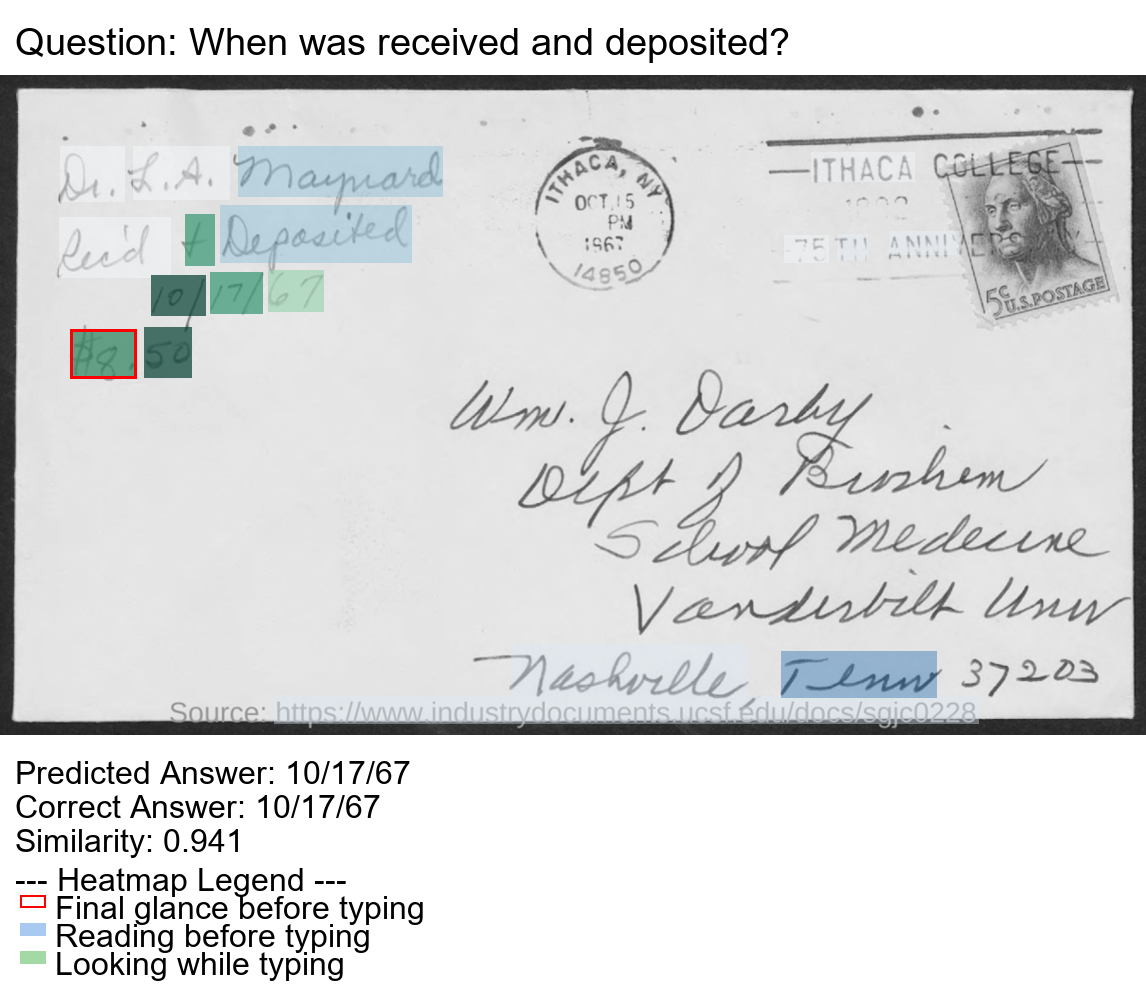 Question: When was received and deposited?
Dr. L.A. Maynard
Rec'd + Deposited
10/17/67
$8.50
ITHACA, NY
OCT 15
PM
1967
14850
ITHACA COLLEGE
75TH ANNIVERS
5¢ U.S. POSTAGE
Wm. J. Darby
Dept of Biochem
School Medecine
Vanderbilt Univ
Nashville, Tenn 37203
Source: https://www.industrydocuments.ucsf.edu/docs/sgjc0228
Predicted Answer: 10/17/67
Correct Answer: 10/17/67
Similarity: 0.941
--- Heatmap Legend ---
Final glance before typing
Reading before typing
Looking while typing